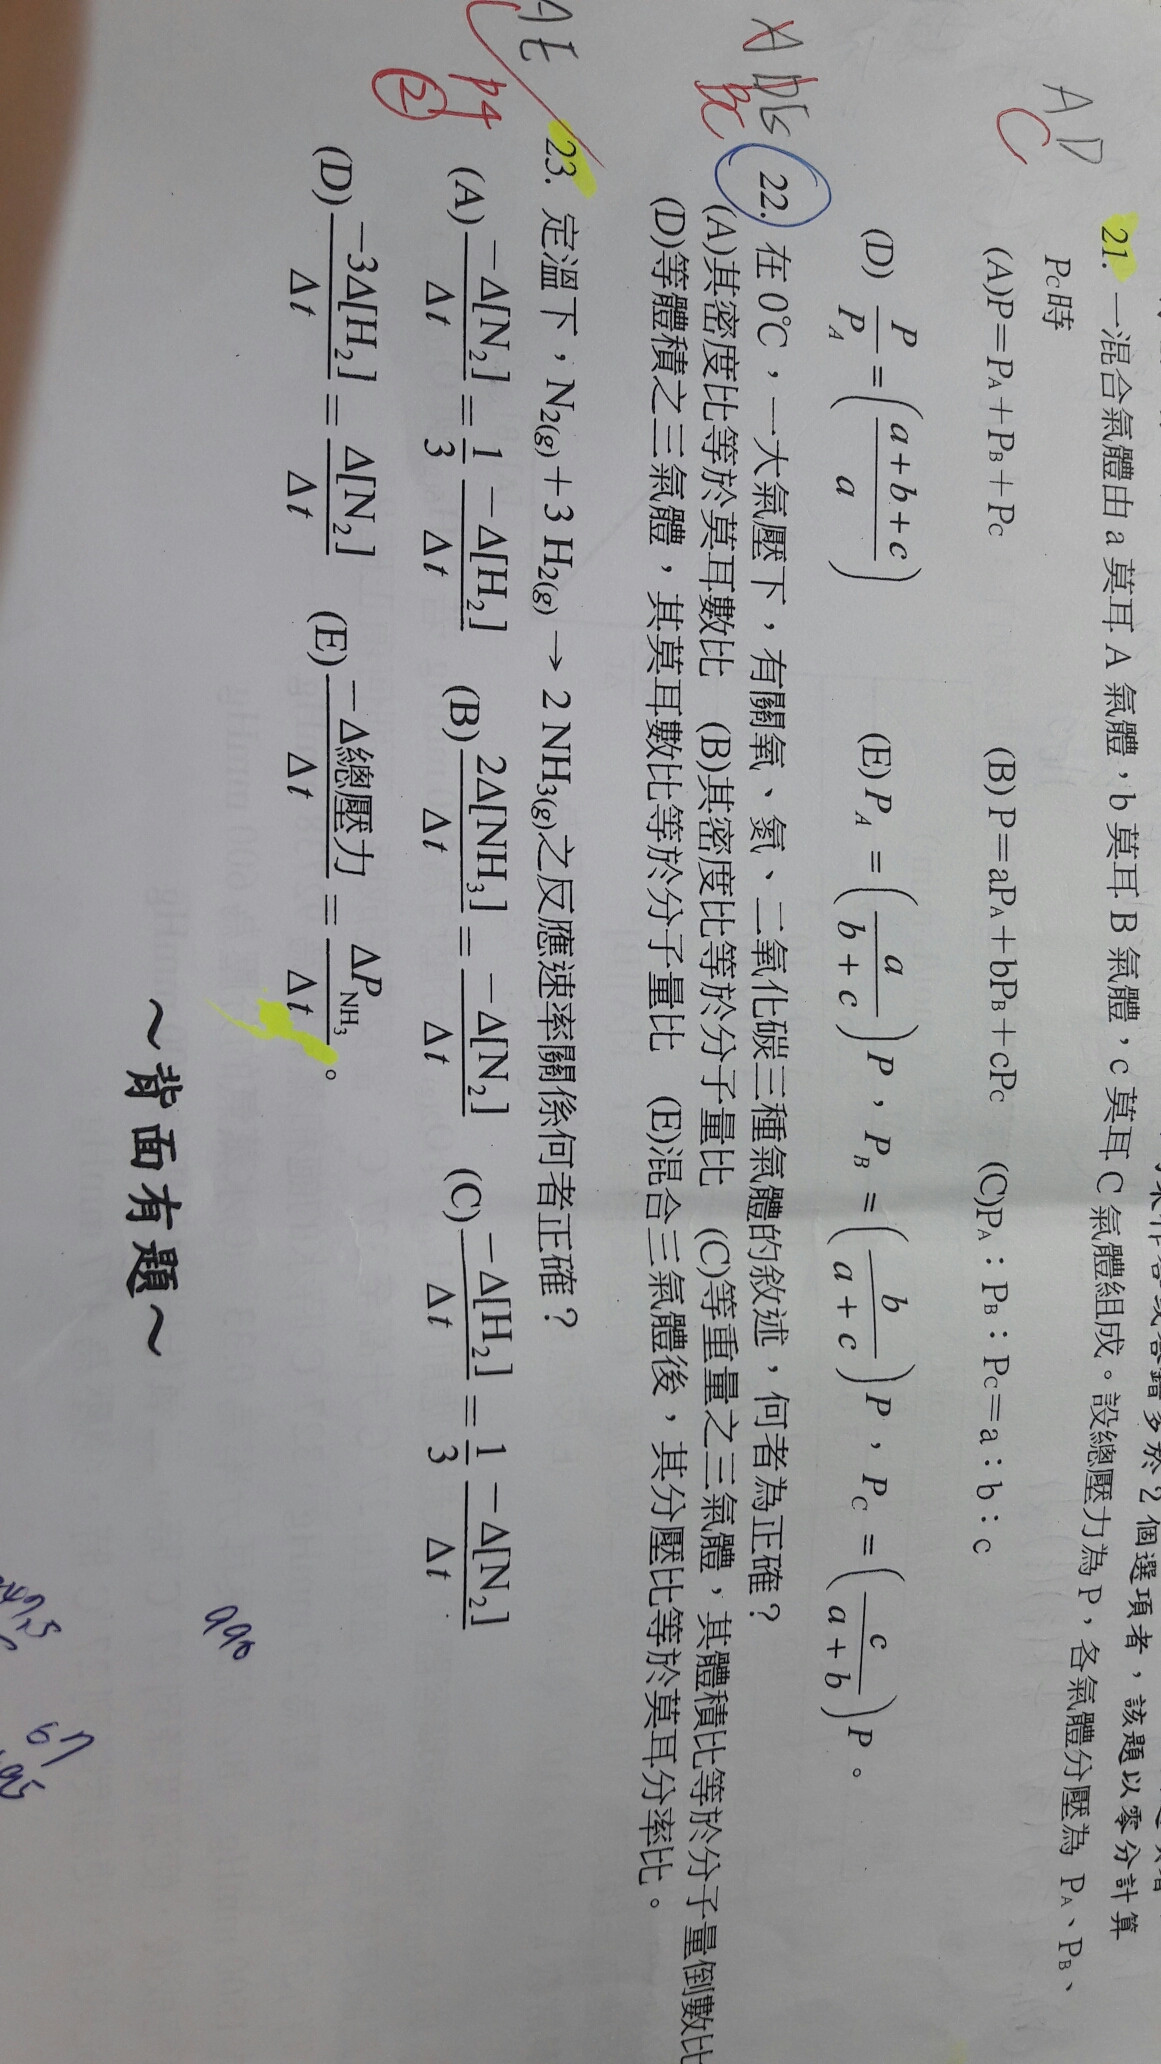 2個選項者，該題以零分計算
AD
C
21. 一混合氣體由 a 莫耳 A 氣體，b 莫耳 B 氣體，c 莫耳 C 氣體組成。設總壓力為 P，各氣體分壓為 PA、PB、
PC時
(A)P＝PA＋PB＋PC (B) P＝aPA＋bPB＋cPC (C)PA：PB：PC＝a：b：c
(D) P/P_A = ((a+b+c)/a) (E) P_A = (a/(b+c))P，P_B = (b/(a+c))P，P_C = (c/(a+b))P。
BC
22. 在 0℃，一大氣壓下，有關氧、氮、二氧化碳三種氣體的敘述，何者為正確？
(A)其密度比等於莫耳數比 (B)其密度比等於分子量比 (C)等重量之三氣體，其體積比等於分子量倒數比
(D)等體積之三氣體，其莫耳數比等於分子量比 (E)混合三氣體後，其分壓比等於莫耳分率比。
AE
23. 定溫下，N₂(g)＋3 H₂(g) → 2 NH₃(g)之反應速率關係何者正確？
P4
②
(A) −Δ[N₂]/Δt = 1/3 −Δ[H₂]/Δt (B) 2Δ[NH₃]/Δt = −Δ[N₂]/Δt (C) −Δ[H₂]/Δt = 1/3 −Δ[N₂]/Δt
(D) −3Δ[H₂]/Δt = Δ[N₂]/Δt (E) −Δ總壓力/Δt = ΔP_NH₃/Δt。
～背面有題～
990
67